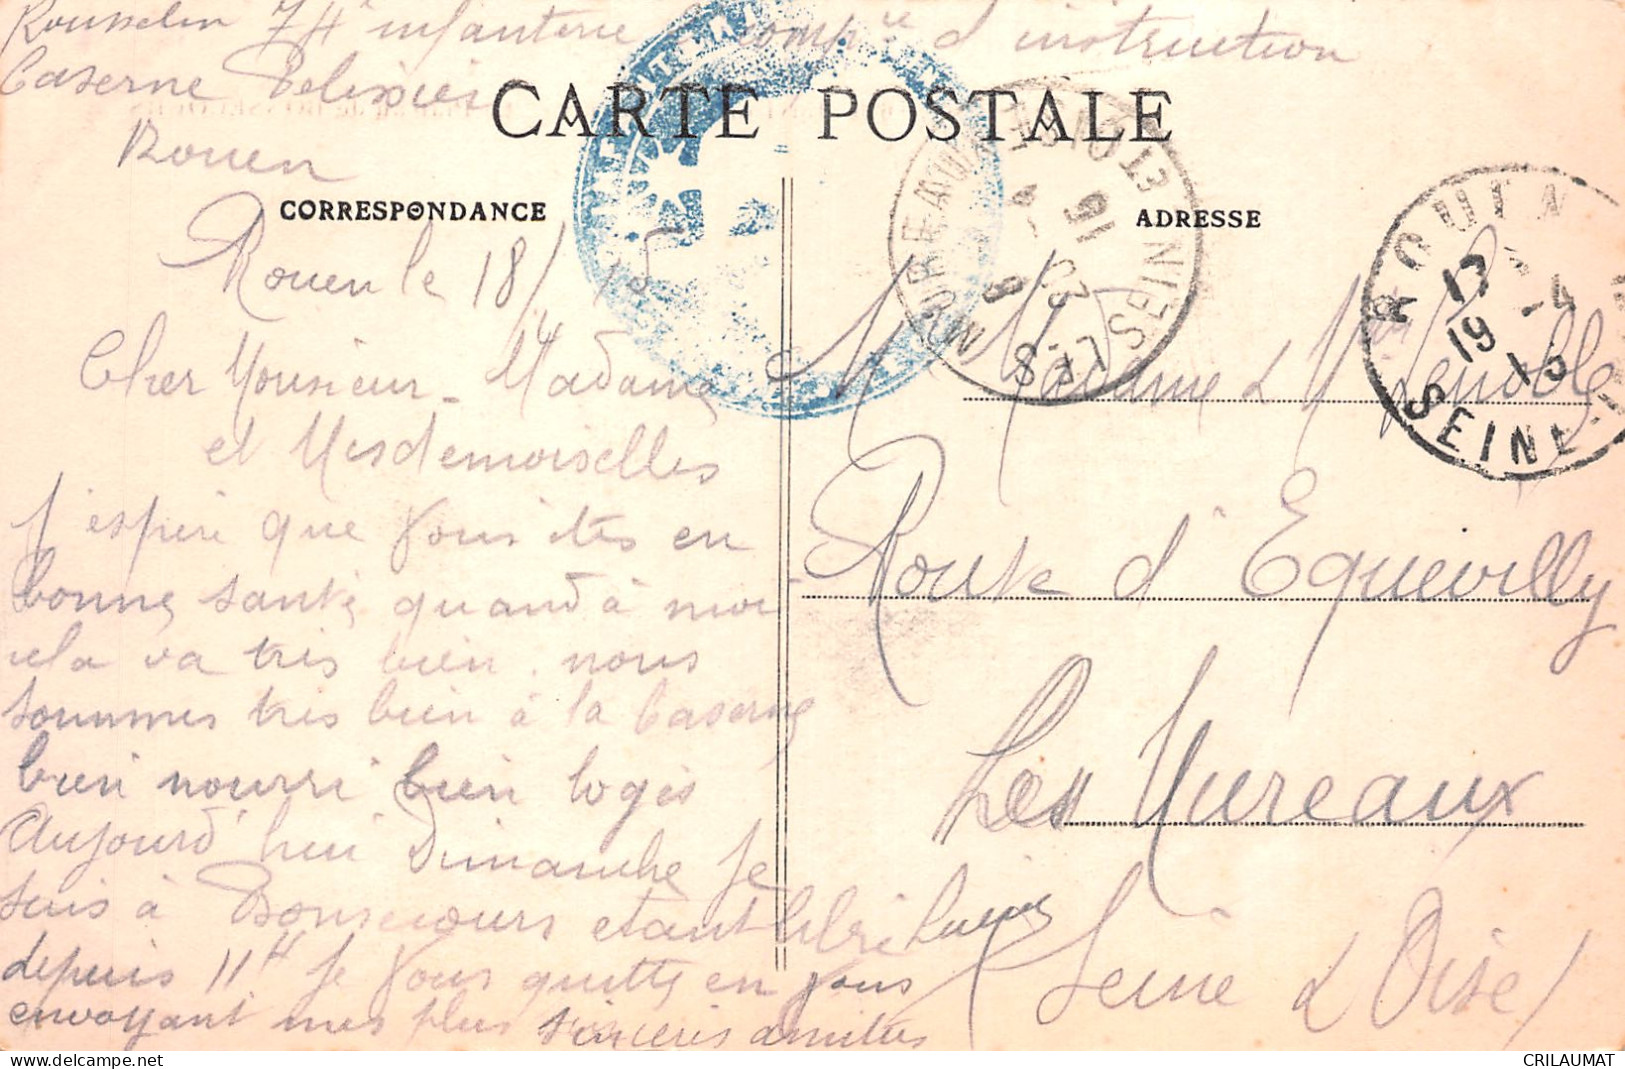 Rousselin 74e infanterie compie d'instruction
Caserne Pelissier
Rouen
CARTE POSTALE
CORRESPONDANCE
ADRESSE
Rouen le 18/4 15
Cher Monsieur Madame
et Mesdemoiselles
J'espère que vous êtes en
bonne santé quand à moi
cela va très bien. nous
sommes très bien à la Caserne
bien nourri bien logés
Aujourd'hui Dimanche Je
suis à Bonsecours etant libre
depuis 11H Je vous quitte en vous
envoyant mes plus sincères amitiés
Lucien
M Madame Lenoble
Route d'Equevilly
Les Mureaux
Seine & Oise
ROUEN
17
19 -4
15
SEINE-INF
LES MUREAUX
SEINE ET OISE
CRILAUMAT